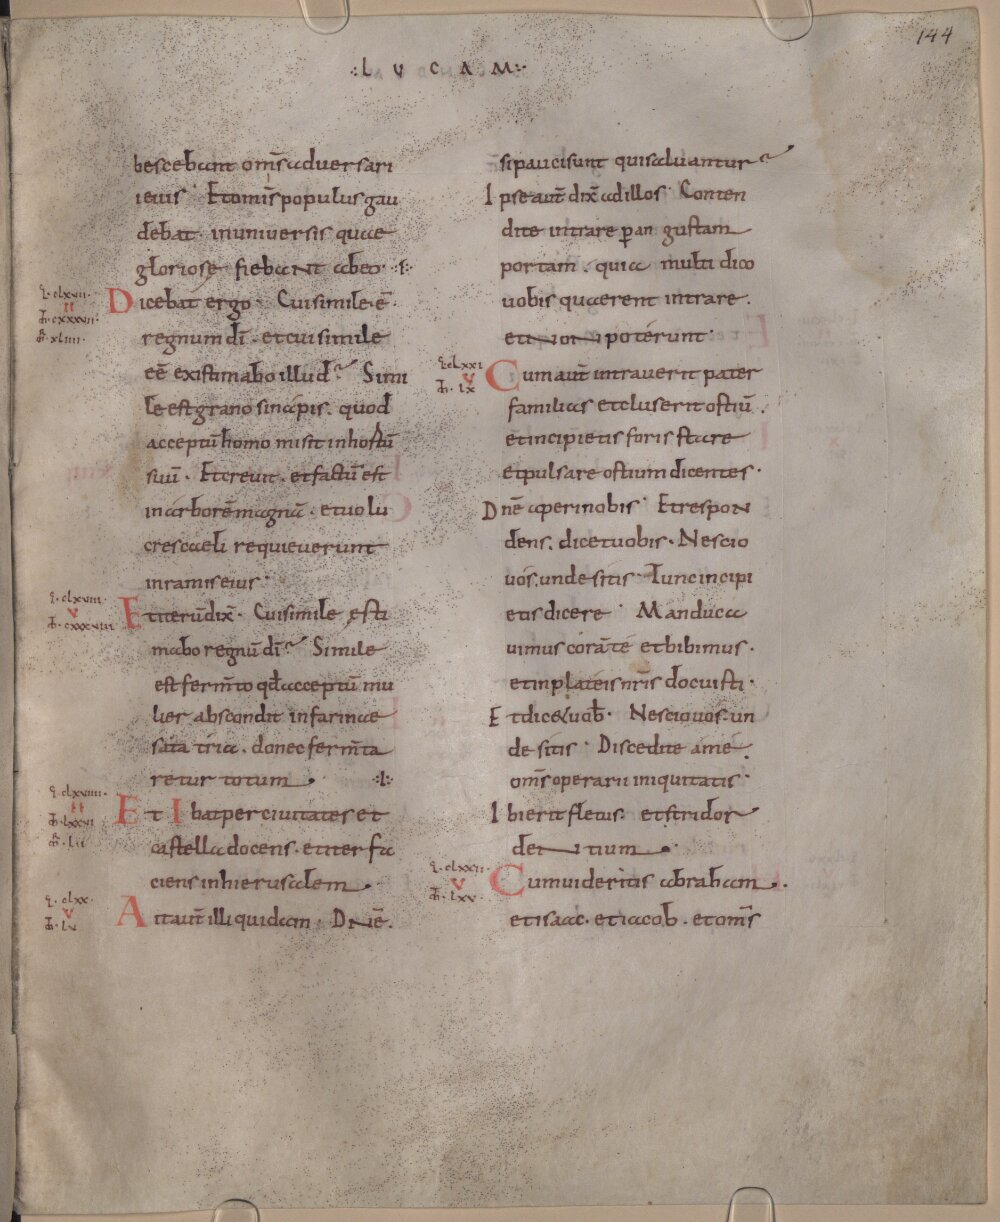 144
·:LVCAM:·
bescebant om̅s aduersari
ieius· Et om̅is populus gau
debat· inuniuersis quae
gloriose fiebant abeo·:
L̅· clxvii·
ii
M̅· cxxxvii·
M̅r· xliiii·
Dicebat ergo· Cui simile e̅·
regnum di̅· et cui simile
ee̅ existimabo illud? Simi
le est grano sinapis· quod
acceptu̅ homo misit in hortu̅
suu̅· Et creuit· et factu̅ est
in arbore̅ magna̅· et uolu
cres caeli requieuerunt
in ramis eius·
L̅· clxviii·
v
M̅· cxxxviii
Et iteru̅ dix̅· Cui simile esti
mabo regnu̅ di̅? Simile
est ferm̅to qd̅ acceptu̅ mu
lier abscondit in farinae
sata tria· donec ferm̅ta
retur totum·
L̅· clxviiii·
ii
M̅· lxcvi
M̅r· lii
Et Ibat per ciuitates et
castella docens· et iter fa
ciens in hierusalem·
L̅· clxx·
v
M̅· lv
Ait aut̅ illi quidam· Dn̅e·
si pauci sunt qui saluantur?
Ipse aut̅ dix̅ ad illos· Conten
dite intrare p̲ angustam
portam· quia multi dico
uobis quaerent intrare·
et non poterunt·
L̅· clxxi
v
M̅· lx
Cum aut̅ intrauerit pater
familias et cluserit ostiu̅·
et incipietis foris stare
et pulsare ostium dicentes·
Dn̅e aperi nobis· Et respon
dens· dicet uobis· Nescio
uos· unde sitis· Tunc incipi
etis dicere· Manduca
uimus cora̅ te et bibimus·
et in plateis nr̅is docuisti·
Et dicet uob̅· Nescio uos· un
de sitis· Discedite a me·
om̅s operarii iniquitatis·
Ibi erit fletus· et stridor
dentium·
L̅· clxxii·
v
M̅· lxv
Cum uideritis abraham·
et isaac· et iacob· et om̅s